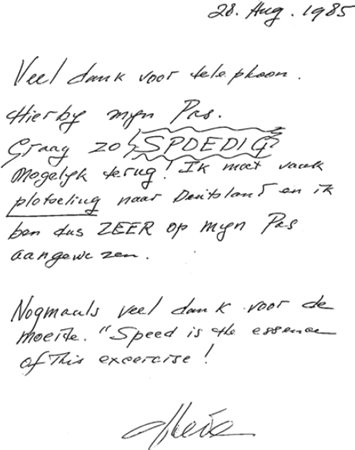 28. Aug. 1985
Veel dank voor telephoon.
Hierby myn Pas.
Graag zo SPOEDIG
Mogelyk terug! Ik moet vaak
plotseling naar Deutsland en ik
ben dus ZEER op myn Pas
aangewezen.
Nogmaals veel dank voor de
moeite. "Speed is the essence
of This excercise!